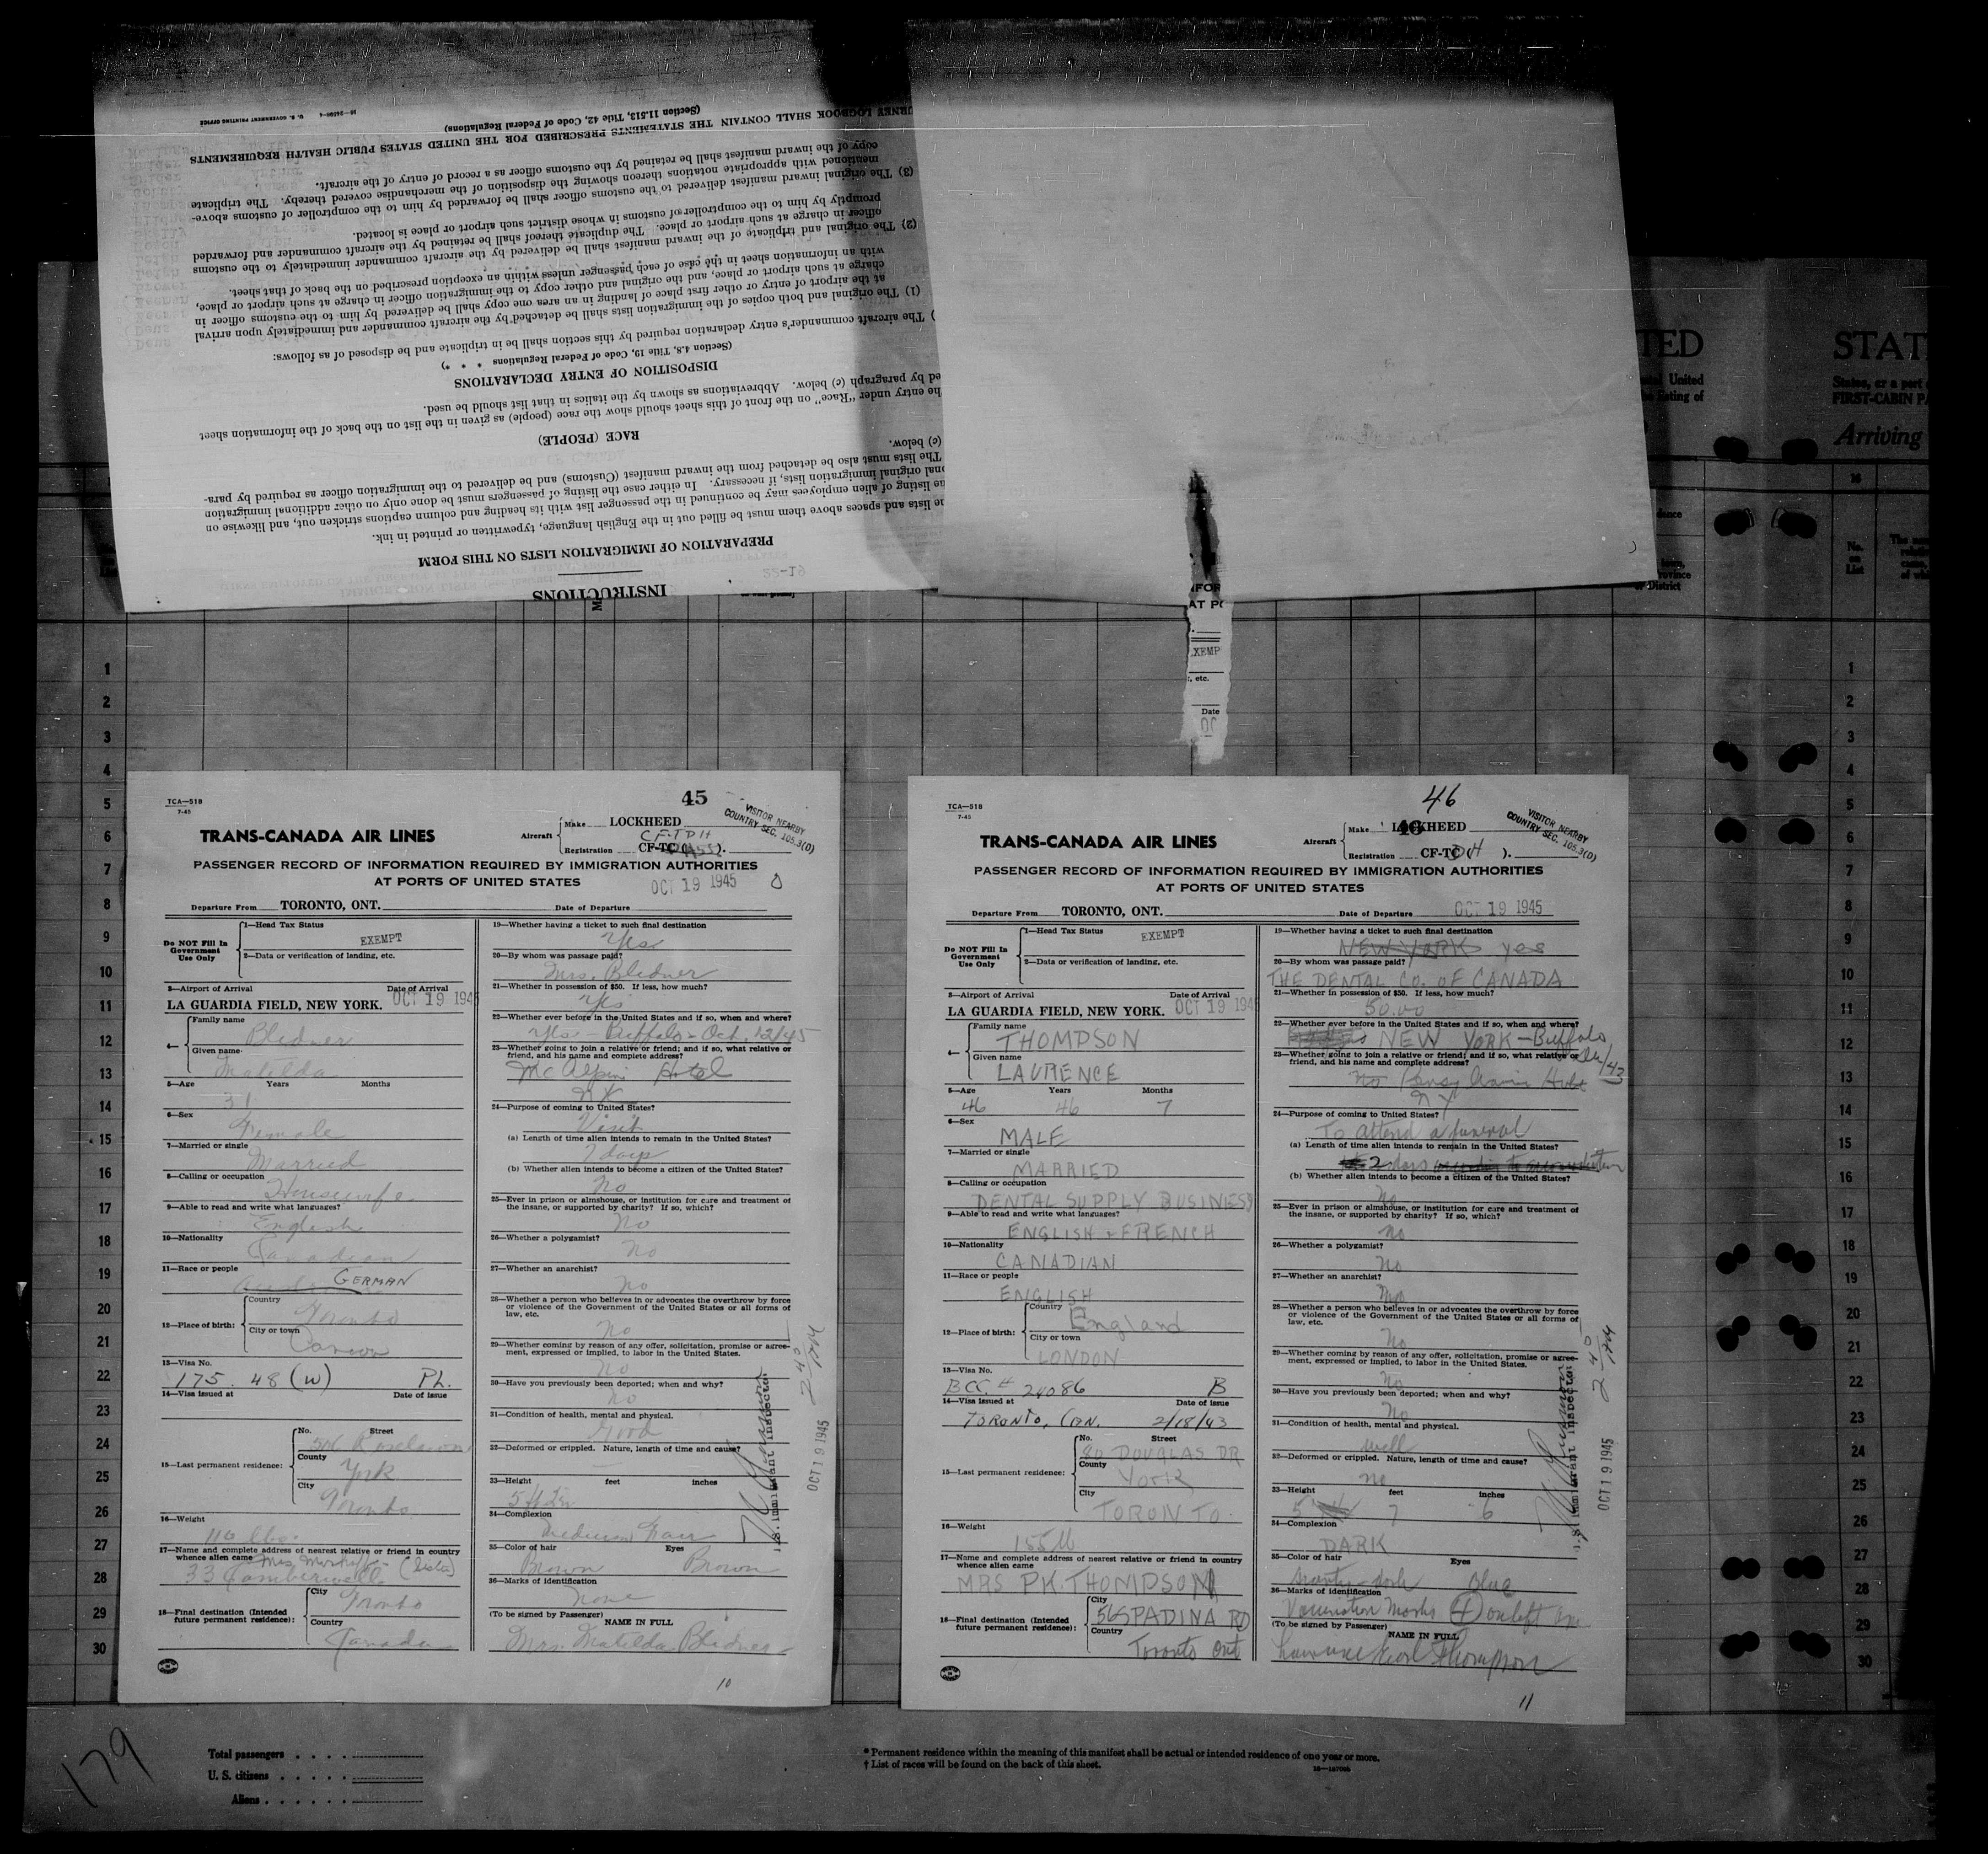 INSTRUCTIONS
PREPARATION OF IMMIGRATION LISTS ON THIS FORM
he lists and spaces above them must be filled out in the English language, typewritten or printed in ink.
ne listing of alien employees may be continued in the passenger list with its heading and column captions stricken out, and likewise on
onal original immigration lists, if necessary. In either case the listing of passengers must be done only on other additional immigration
The lists must also be detached from the inward manifest (Customs) and be delivered to the immigration officer as required by para-
(c) below.
RACE (PEOPLE)
he entry under "Race" on the front of this sheet should show the race (people) as given in the list on the back of the information sheet
ed by paragraph (c) below. Abbreviations as shown by the italics in that list should be used.
DISPOSITION OF ENTRY DECLARATIONS
(Section 4.8, Title 19, Code of Federal Regulations * * *)
) The aircraft commander's entry declaration required by this section shall be in triplicate and be disposed of as follows:
(1) The original and both copies of the immigration lists shall be detached by the aircraft commander and immediately upon arrival
at the airport of entry or other first place of landing in an area one copy shall be delivered by him to the customs officer in
charge at such airport or place, and the original and other copy to the immigration officer in charge at such airport or place,
with an information sheet in the case of each passenger unless within an exception prescribed on the back of that sheet.
(2) The original and triplicate of the inward manifest shall be delivered by the aircraft commander immediately to the customs
officer in charge at such airport or place. The duplicate thereof shall be retained by the aircraft commander and forwarded
promptly by him to the comptroller of customs in whose district such airport or place is located.
(3) The original inward manifest delivered to the customs officer shall be forwarded by him to the comptroller of customs above-
mentioned with appropriate notations thereon showing the disposition of the merchandise covered thereby. The triplicate
copy of the inward manifest shall be retained by the customs officer as a record of entry of the aircraft.
URNEY LOGBOOK SHALL CONTAIN THE STATEMENTS PRESCRIBED FOR THE UNITED STATES PUBLIC HEALTH REQUIREMENTS
(Section 11.513, Title 42, Code of Federal Regulations)
U. S. GOVERNMENT PRINTING OFFICE
TED
STAT
FIRST-CABIN PA
Arriving
No. on List
XEMP
, etc.
Date
TCA—518
7-45
45
VISITOR NEARBY
COUNTRY SEC. 105.3(D)
TRANS-CANADA AIR LINES
Aircraft
Make LOCKHEED
CF-TDH
Registration CF-TC ( ).
PASSENGER RECORD OF INFORMATION REQUIRED BY IMMIGRATION AUTHORITIES
AT PORTS OF UNITED STATES
OCT 19 1945
Departure From TORONTO, ONT. Date of Departure
Do NOT Fill In
Government
Use Only
1—Head Tax Status
EXEMPT
2—Data or verification of landing, etc.
3—Airport of Arrival Date of Arrival
LA GUARDIA FIELD, NEW YORK. OCT 19 194
4—
Family name
Blidner
Given name
Matilda
5—Age Years Months
31
6—Sex
Female
7—Married or single
Married
8—Calling or occupation
Housewife
9—Able to read and write what languages?
English
10—Nationality
Canadian
11—Race or people
GERMAN
12—Place of birth:
Country
Toronto
City or town
Canada
13—Visa No.
175. 48 (W) PL.
14—Visa issued at Date of issue
15—Last permanent residence:
No. Street
County
York
City
Toronto
16—Weight
17—Name and complete address of nearest relative or friend in country
whence alien came
33 Camberwell (Sister)
18—Final destination (Intended
future permanent residence):
City
Toronto
Country
Canada
19—Whether having a ticket to such final destination
Yes
20—By whom was passage paid?
Mrs. Blidner
21—Whether in possession of $50. If less, how much?
Yes
22—Whether ever before in the United States and if so, when and where?
Yes - Buffalo - Oct. 12/45
23—Whether going to join a relative or friend; and if so, what relative or
friend, and his name and complete address?
McAlpin Hotel
24—Purpose of coming to United States?
Visit
(a) Length of time alien intends to remain in the United States?
7 days
(b) Whether alien intends to become a citizen of the United States?
No
25—Ever in prison or almshouse, or institution for care and treatment of
the insane, or supported by charity? If so, which?
No
26—Whether a polygamist?
No
27—Whether an anarchist?
No
28—Whether a person who believes in or advocates the overthrow by force
or violence of the Government of the United States or all forms of
law, etc.
No
29—Whether coming by reason of any offer, solicitation, promise or agree-
ment, expressed or implied, to labor in the United States.
No
30—Have you previously been deported; when and why?
No
31—Condition of health, mental and physical.
Good
32—Deformed or crippled. Nature, length of time and cause?
33—Height feet inches
34—Complexion
Medium Fair
35—Color of hair Eyes
Brown Brown
36—Marks of identification
None
(To be signed by Passenger) NAME IN FULL
Mrs. Matilda Blidner
U.S. Immigrant Inspector
OCT 19 1945
2 40 PM
10
TCA—518
7-45
46
VISITOR NEARBY
COUNTRY SEC. 105.3(D)
TRANS-CANADA AIR LINES
Aircraft
Make LOCKHEED
Registration CF-TC ( DH ).
PASSENGER RECORD OF INFORMATION REQUIRED BY IMMIGRATION AUTHORITIES
AT PORTS OF UNITED STATES
Departure From TORONTO, ONT. Date of Departure OCT 19 1945
Do NOT Fill In
Government
Use Only
1—Head Tax Status
EXEMPT
2—Data or verification of landing, etc.
3—Airport of Arrival Date of Arrival
LA GUARDIA FIELD, NEW YORK. OCT 19 194
4—
Family name
THOMPSON
Given name
LAURENCE
5—Age Years Months
46 46 7
6—Sex
MALE
7—Married or single
MARRIED
8—Calling or occupation
DENTAL SUPPLY BUSINESS
9—Able to read and write what languages?
ENGLISH + FRENCH
10—Nationality
CANADIAN
11—Race or people
ENGLISH
12—Place of birth:
Country
England
City or town
LONDON
13—Visa No.
BCC. # 24086 B
14—Visa issued at Date of issue
TORONTO, CAN. 2/18/43
15—Last permanent residence:
No. Street
80 DOUGLAS DR
County
YORK
City
TORONTO
16—Weight
155
17—Name and complete address of nearest relative or friend in country
whence alien came
MRS P.K. THOMPSON
18—Final destination (Intended
future permanent residence):
City
SPADINA RD
Country
Toronto Ont
19—Whether having a ticket to such final destination
NEW YORK yes
20—By whom was passage paid?
THE DENTAL CO. OF CANADA
21—Whether in possession of $50. If less, how much?
50.00
22—Whether ever before in the United States and if so, when and where?
NEW YORK - Buffalo
23—Whether going to join a relative or friend; and if so, what relative or
friend, and his name and complete address?
No
NY
24—Purpose of coming to United States?
To attend a funeral
(a) Length of time alien intends to remain in the United States?
2 days
(b) Whether alien intends to become a citizen of the United States?
No
25—Ever in prison or almshouse, or institution for care and treatment of
the insane, or supported by charity? If so, which?
No
26—Whether a polygamist?
No
27—Whether an anarchist?
No
28—Whether a person who believes in or advocates the overthrow by force
or violence of the Government of the United States or all forms of
law, etc.
No
29—Whether coming by reason of any offer, solicitation, promise or agree-
ment, expressed or implied, to labor in the United States.
No
30—Have you previously been deported; when and why?
No
31—Condition of health, mental and physical.
well
32—Deformed or crippled. Nature, length of time and cause?
no
33—Height feet inches
5 7 6
34—Complexion
DARK
35—Color of hair Eyes
dark blue
36—Marks of identification
Vaccination Marks (4) on left arm
(To be signed by Passenger) NAME IN FULL
Thompson
U.S. Immigrant Inspector
OCT 19 1945
2 40 PM
11
179
Total passengers
U. S. citizens
Aliens
* Permanent residence within the meaning of this manifest shall be actual or intended residence of one year or more.
† List of races will be found on the back of this sheet.